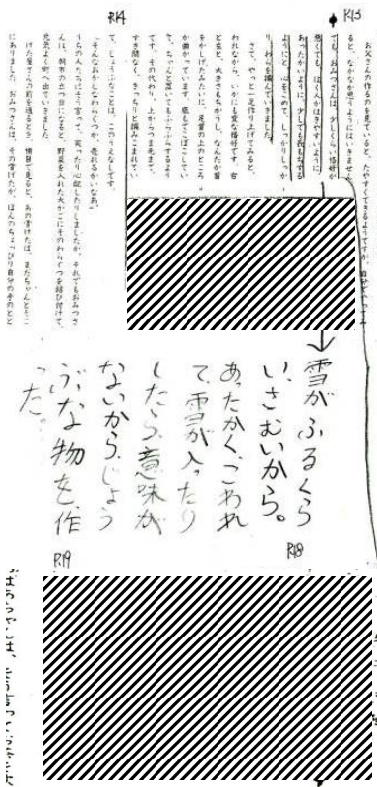 R15
お父さんの作るのを見ていると、たやすくできるようですが、自分でやってみ
ると、なかなか思うようにはいきません。
でも、おみつさんは、少しくらい格好が
悪くても、はく人がはきやすいように、
あったかいように、少しでも長もちする
ようにと、心をこめて、しっかりしっか
り、わらを編んでいきました。
さて、やっと一足作り上げてみると、
われながら、いかにも変な格好です。右
と左と、大きさもちがうし、なんだか首
をかしげたみたいに、足首の上のところ
が曲がっています。底もでこぼこしてい
て、ちゃんと置いてもふらふらするよう
です。その代わり、上からつま先まで、
すき間なく、きっちりと編みこまれてい
R14
て、じょうぶなことは、このうえなしです。
「そんなおかしなわらぐつが、売れるかいなあ。」
うちの人たちはそう言って、笑ったり心配したりしましたが、それでもおみつさ
んは、朝市の立つ日になると、野菜を入れた大かごにそのわらぐつを結び付けて、
元気よく町へ出ていきました。
げた屋さんの前を通るとき、横目で見ると、あの雪げたは、まだちゃんとそこ
にありました。おみつさんは、その雪げたが、ほんのちょっぴり自分の手のとど
雪がふるくら
い、さむいから。
あったかく、こわれ
て、雪が入ったり
したら、意味が
ないから、じょう
ぶな物を作
った。
R18
R19
ばあちゃんは、